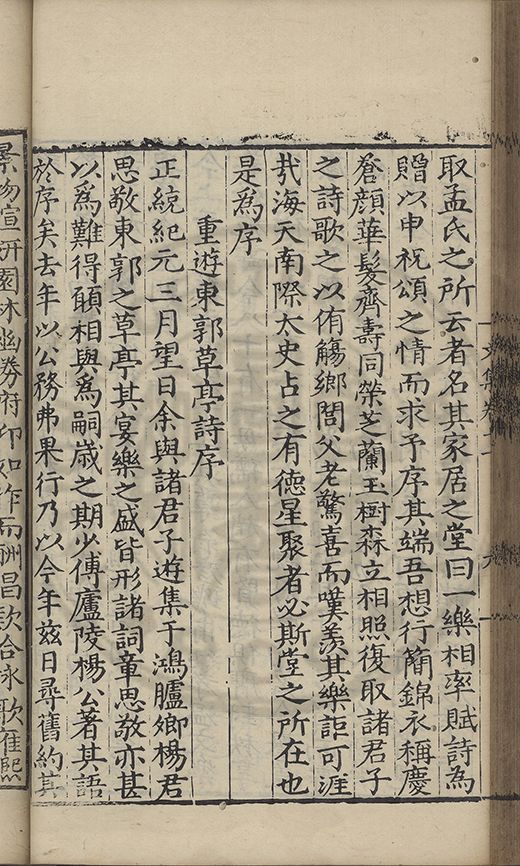 取孟氏之所云者名其家居之堂曰一樂相率賦詩為
贈以申祝頌之情而求予序其端吾想行簡錦衣稱慶
蒼顏華髮齊壽同榮芝蘭玉樹森立相照復取諸君子
之詩歌之以侑觴鄉閭父老驚喜而嘆羨其樂詎可涯
㢤海天南際太史占之有德星聚者必斯堂之所在也
是為序
重遊東郭草亭詩序
正統紀元三月望日余與諸君子遊集于鴻臚鄉楊君
思敬東郭之草亭其宴樂之盛皆形諸詞章思敬亦甚
以為難得願相與為嗣歲之期少傅廬陵楊公著其語
於序矣去年以公務弗果行乃以今年茲日尋舊約其
園林幽勝府仰如昨而酬昌欽合詠歌雍熙